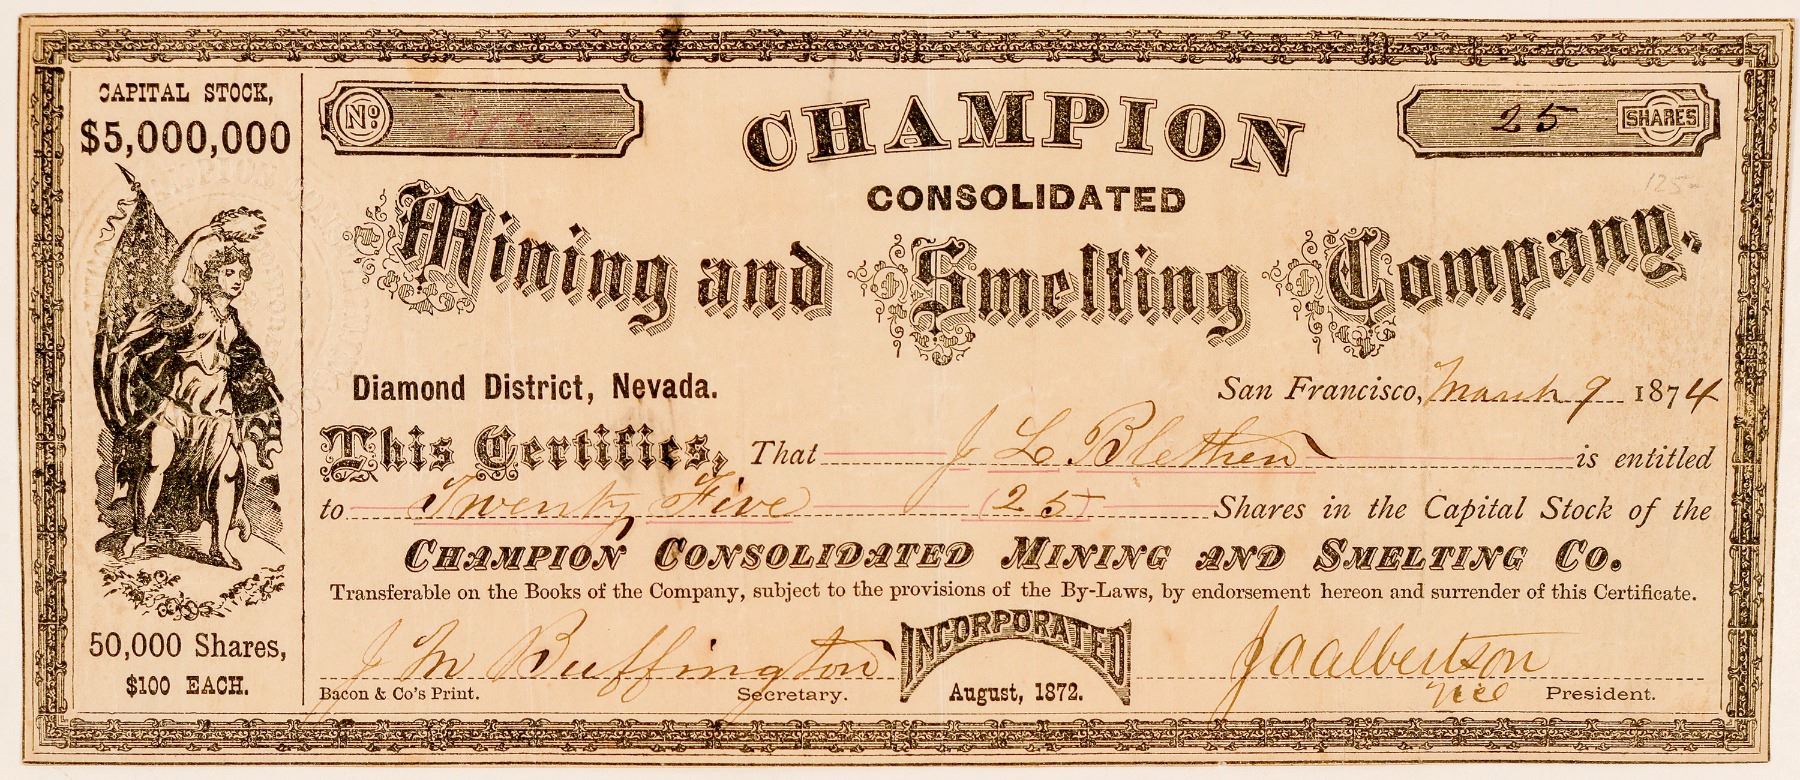 CAPITAL STOCK,
$5,000,000
50,000 Shares,
$100 EACH.
No.
25 SHARES
125
CHAMPION
CONSOLIDATED
Mining and Smelting Company.
Diamond District, Nevada.
San Francisco, March 9 1874
This Certifies, That J L Blethen is entitled
to Twenty Five (25) Shares in the Capital Stock of the
CHAMPION CONSOLIDATED MINING AND SMELTING CO.
Transferable on the Books of the Company, subject to the provisions of the By-Laws, by endorsement hereon and surrender of this Certificate.
J M Buffington
INCORPORATED
J A Albertson
Bacon & Co's Print. Secretary.
August, 1872.
Vice President.